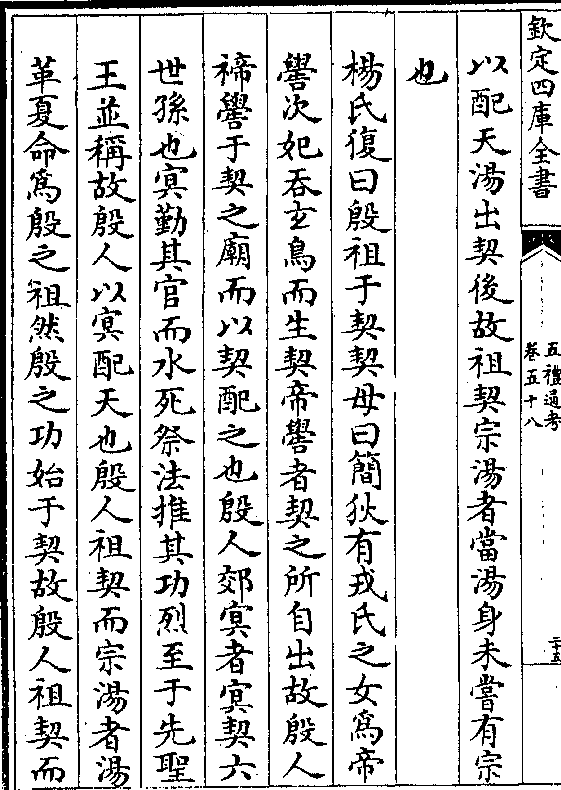 欽定四庫全書
五禮通考
卷五十八
二十五
以配天湯出契後故祖契宗湯者當湯身未嘗有宗
也
楊氏復曰殷祖于契契母曰簡狄有戎氏之女為帝
嚳次妃吞玄鳥而生契帝嚳者契之所自出故殷人
禘嚳于契之廟而以契配之也殷人郊㝠者㝠契六
世孫也㝠勤其官而水死祭法推其功烈至于先聖
王並稱故殷人以㝠配天也殷人祖契而宗湯者湯
革夏命為殷之祖然殷之功始于契故殷人祖契而